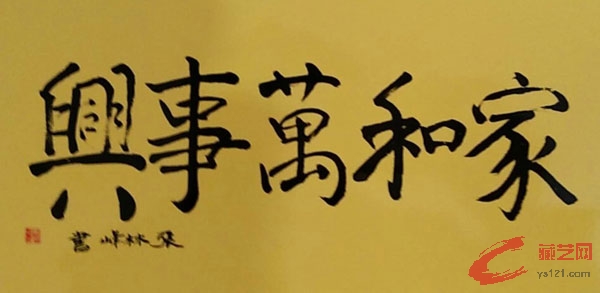 家和萬事興
林峰書
藏艺网
ys121.com